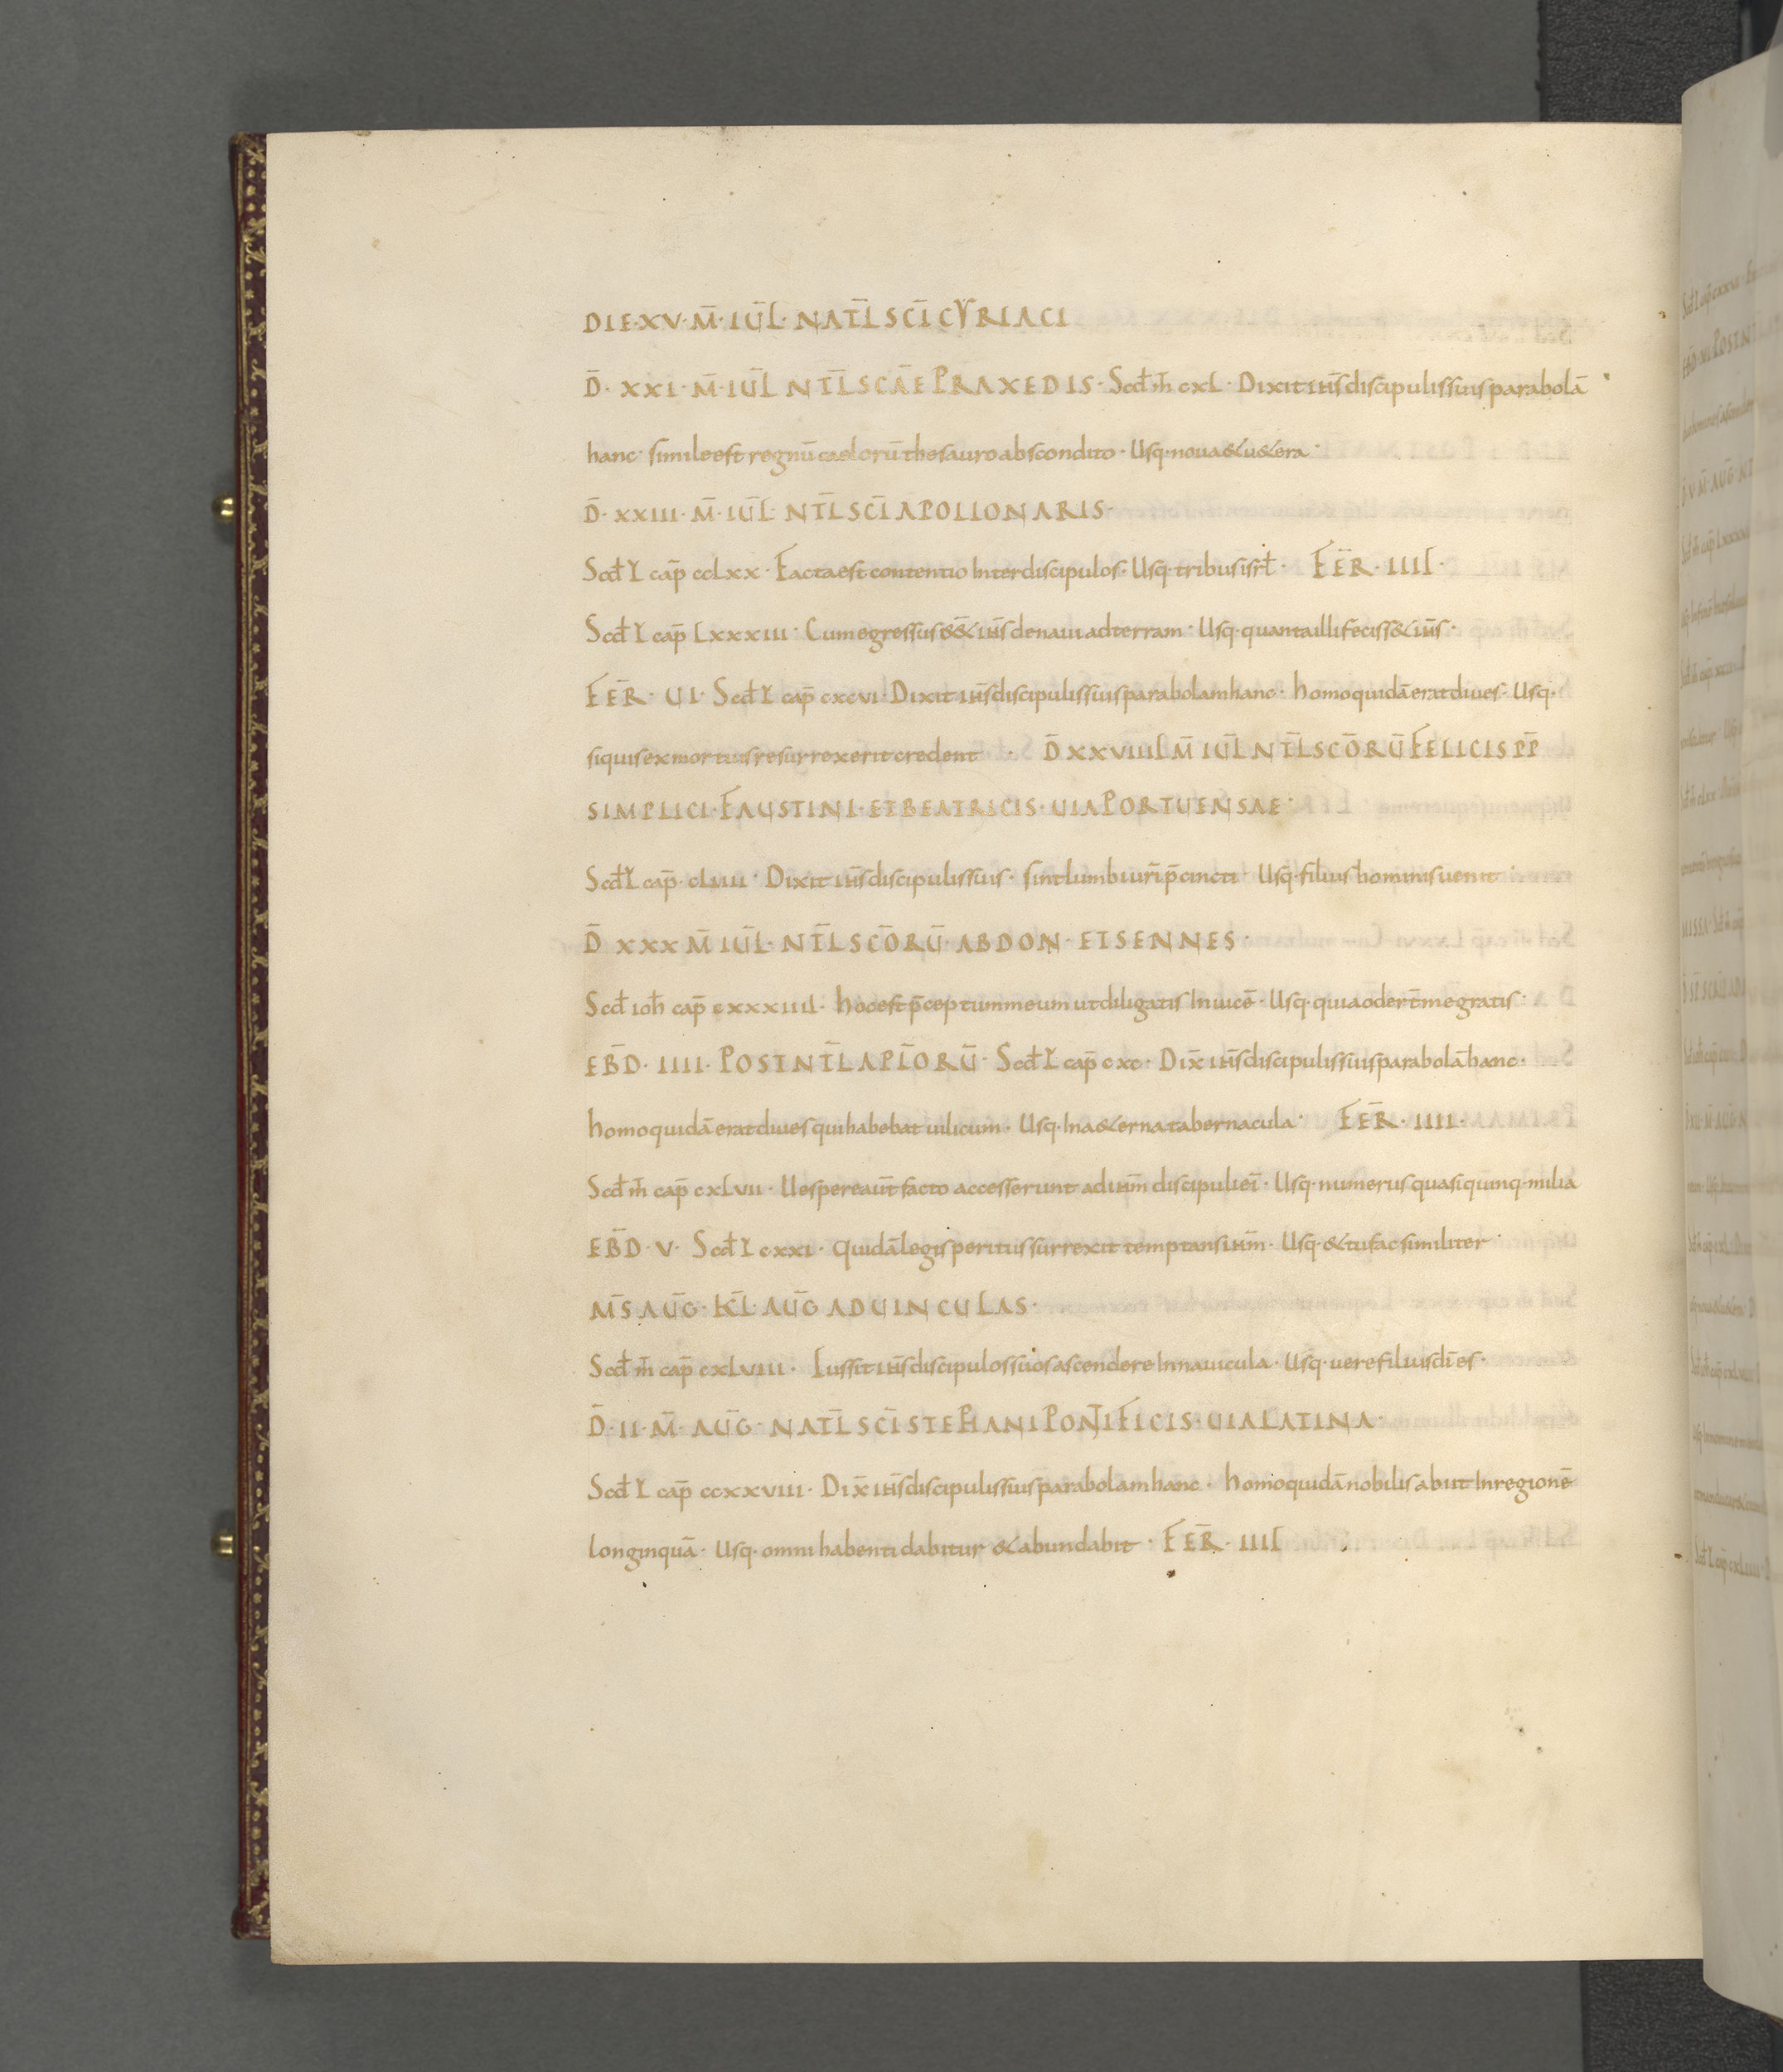 DIE·XV·M̄·IŪL·NAT̄L SC̄I CYRIACI
D̄·XXI·M̄·IŪL NT̄L SCĀE PRAXEDIS· Scđ m̄ cxL· Dixit ih̄s discipulis suis parabolā
hanc· simile est regnū caelorū thesauro abscondito· Usq· noua & u&era·
D̄·XXIII·M̄·IŪL·NT̄L SC̄I APOLLONARIS·
Scđ L cap̄ ccLxx· Facta est contentio Inter discipulos· Usq· tribus isrł· FER̄·IIII·
Scđ L cap̄ Lxxxiii· Cum egressus ess& ih̄s de naui ad terram· Usq· quanta illi feciss& ih̄s·
FER̄·UI· Scđ L cap̄ cxcvi· Dixit ih̄s discipulis suis parabolam hanc· homo quidā erat diues· Usq·
si quis ex mortuis resurrexerit credent · D̄ XXVIIII M̄ IŪL NT̄L SCŌRŪ FELICIS PP̄
SIMPLICI·FAUSTINI·ET BEATRICIS·UIA PORTUENSAE·
Scđ L cap̄·cLviiii· Dixit ih̄s discipulis suis· sint lumbi ur̄i p̄cincti· Usq· filius hominis uenit·
D̄ XXX M̄ IŪL·NT̄L SCŌRŪ·ABDON·ET SENNES·
Scđ ioħ cap̄ cxxxiiii· hoc est p̄ceptum meum ut diligatis Inuicē· Usq· quia oder̄t me gratis·
EB̄D·IIII·POST NT̄L APL̄ORŪ· Scđ L cap̄ cxc· Dix̄ ih̄s discipulis suis parabolā hanc·
homo quidā erat diues qui habebat uilicum· Usq· In a&erna tabernacula· FER̄·IIII·
Scđ m̄ cap̄ cxLvii· Uespere aūt facto accesserunt ad ih̄m discipuli ei· Usq· numerus quasi quinq· milia
EB̄D·V· Scđ L cxxi· quidā legis peritus surrexit temptans ih̄m· Usq· & tu fac similiter·
M̄S AŪG·KL̄ AŪG AD UINCULAS·
Scđ m̄ cap̄ cxLviii· Iussit ih̄s discipulos suos ascendere In nauicula· Usq· uere filius dī es·
D̄·II·M̄·AŪG·NAT̄L SC̄I STEPHANI PONTIFICIS·UIA LATINA·
Scđ L cap̄ ccxxviii· Dix̄ ih̄s discipulis suis parabolam hanc· homo quidā nobilis abiit In regionē
longinquā· Usq· omni habenti dabitur & abundabit· FER̄·IIII